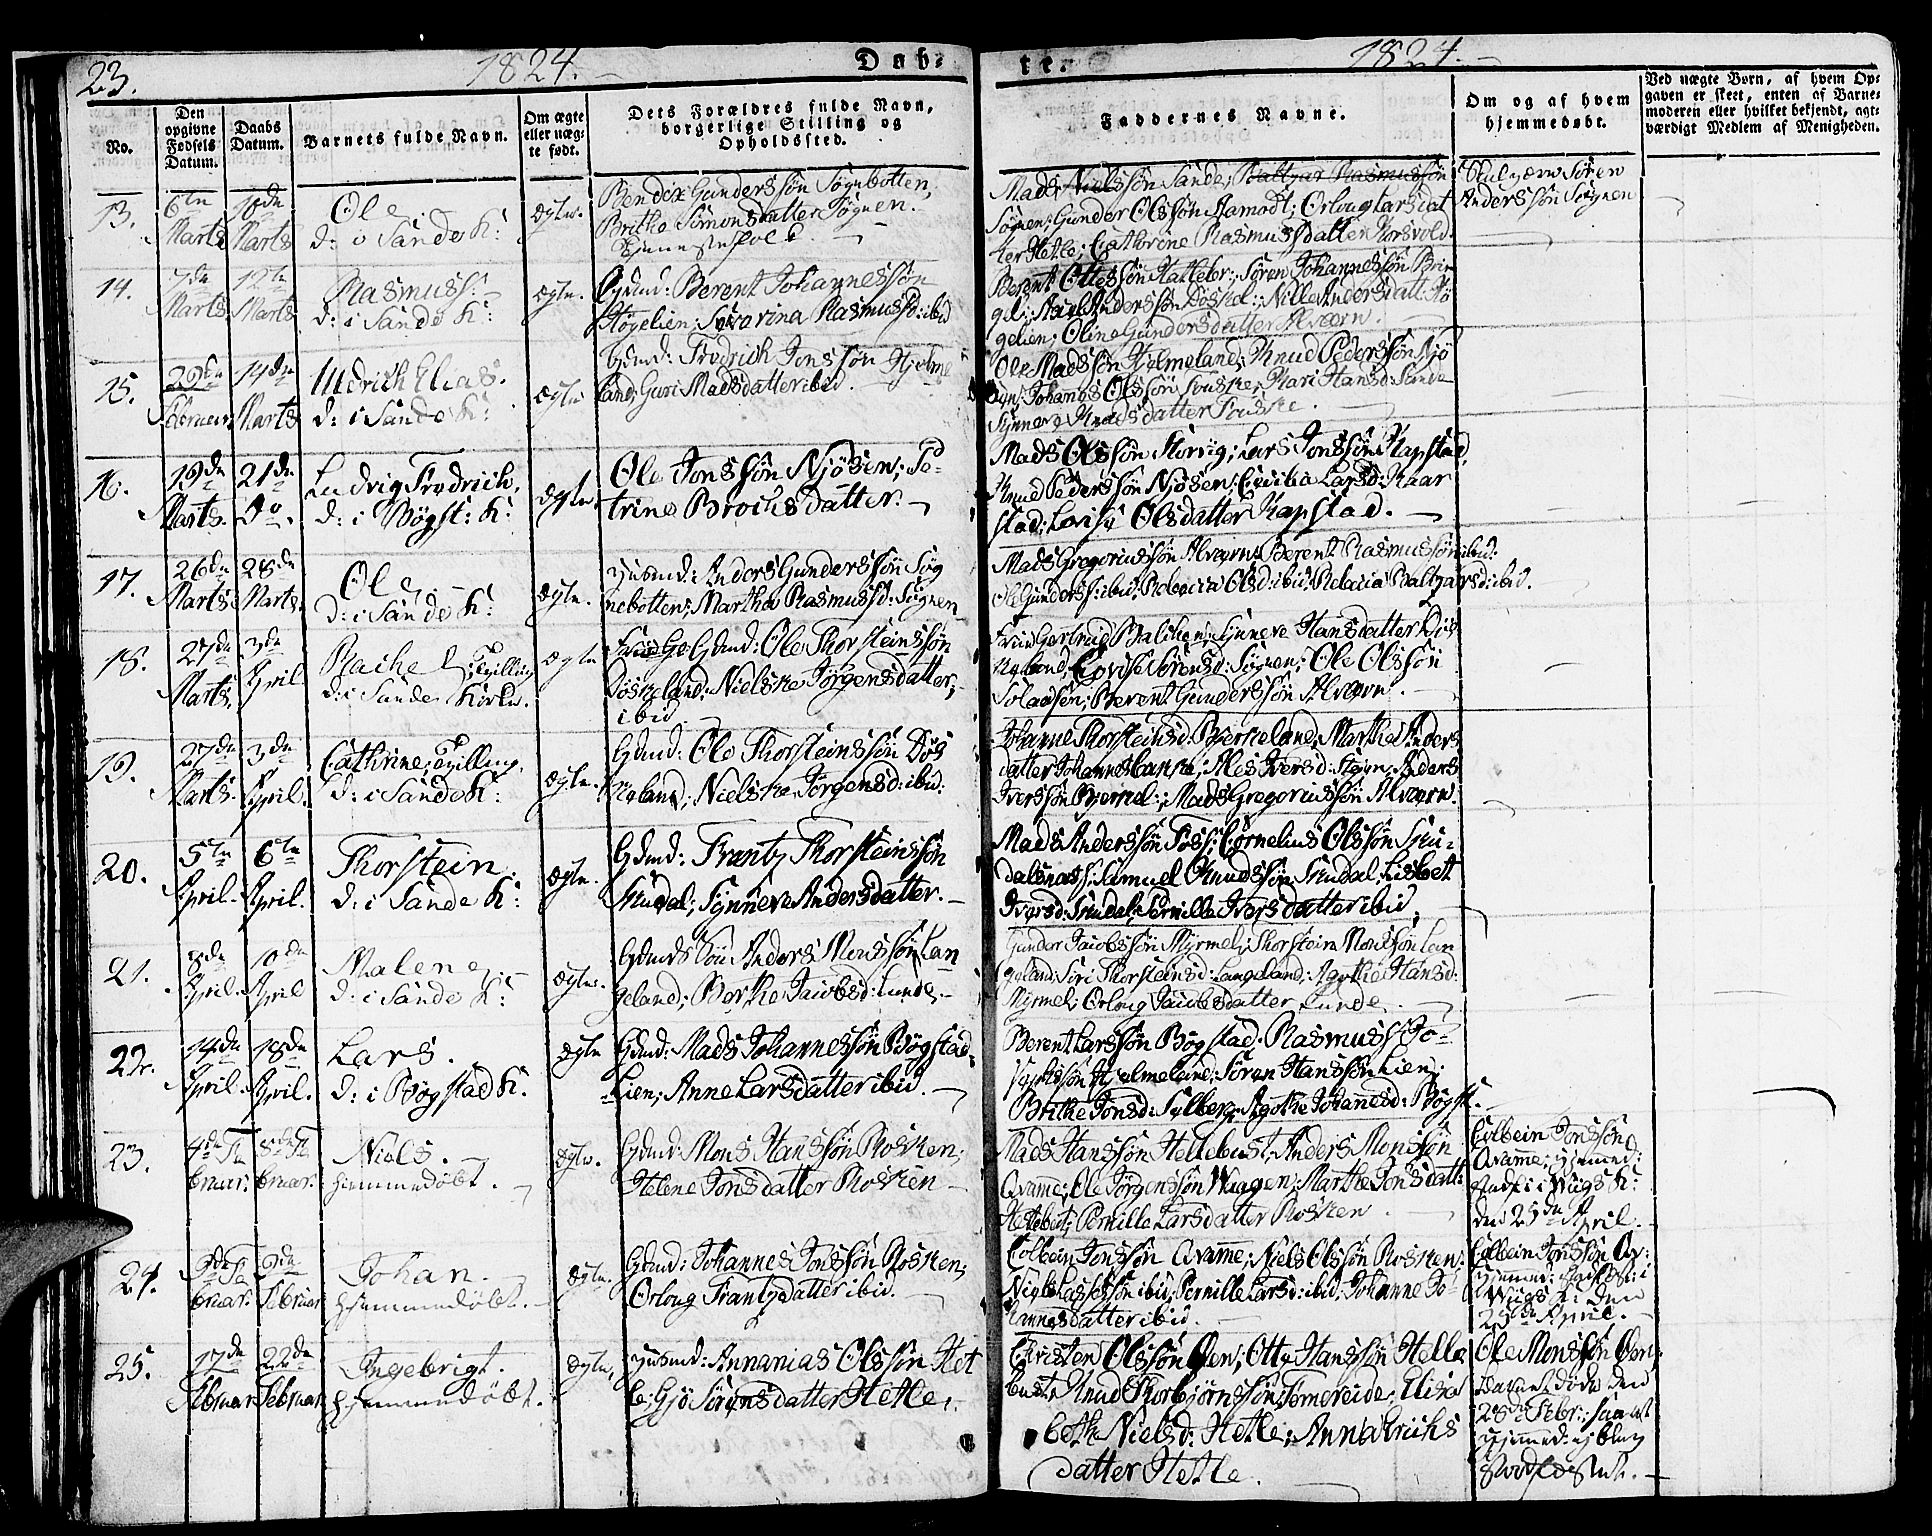 23.
1824.
Døb-
te.
1824.
No.
Den
opgivne
Fødsels
Datum.
Daabs
Datum.
Barnets fulde Navn.
Om ægte
eller uæg-
te født.
Dets Forældres fulde Navn,
borgerlige Stilling og
Opholdssted.
Faddernes Navne.
Om og af hvem
hjemmedøbt.
Ved uægte Børn, af hvem Op-
gaven er skeet, enten af Barne-
moderen eller hvilket bekjendt, agt-
værdigt Medlem af Menigheden.
13.
6te
Marts
10de
Marts
Ole
D: i Sande K:
Ægte.
Bendix Gunderssøn Søgnebotten,
Brithe Simonsdatter Søgnen.
Tjenestefolk.
Mads Nielssøn Sande; Baltzar Rasmussøn
Søgnen; Gunder Olssøn Aamodt; Orloug Larsdat
ter Hetle; Cathrine Rasmusdatter Horsvold.
Søren
Anderssøn Søgnen
14.
7de
Marts
12te
Marts
Rasmus
D: i Sande K:
Ægte.
Gdmd: Berent Johannessøn
Høgelien; Severina Rasmusd: ibid
Berent Ottessøn Hatleber; Søren Johannessøn Brin
gel; Anderssøn Døskel:; Nille Andersdatt: Hø
gelien; Oline Gundersdatter Alværn.
15.
29de
Februar
14de
Marts
Uldrich Elias.
D: i Sande K:
Ægte
Gdmd: Fredrich Jonssøn Hjelme
land; Guri Madsdatter ibid.
Ole Madssøn Hjelmeland; Knud Pederssøn Njø
sen; Johannes Olssøn; Kari Hansd: Sande
Synneve Knudsdatter
16.
19de
Marts.
21de
Do.
Ludvig Fredrich.
D: i Bøgst: K:
Ægte.
Ole Jonssøn Njøsen; Pe-
trine Brochsdatter.
Mads Olssøn Storvig; Lars Jonssøn Kapstad,
Knud Pederssøn Njøsen; Cecilia Larsd: Kaar
stad; Lovise Olsdatter Kapstad.
17.
26de
Marts
28de
Marts.
Ole
D: i Sande K:
Ægte.
Huusmd: Anders Gunderssøn Søg
nebotten; Martha Rasmusd: Søgnen
Mads Gregoriussøn Alværn; Berent Rasmussøn ibid:
Ole Gunders: ibid; Rebecca Olsd: ibid; Rebecca Baltzarsd: ibid.
18.
27de
Marts.
3de
April
Rachel; Tvilling
D: i Sande Kirke.
Ægte
Gdmd: Ole Thorsteinssøn
Døskeland; Nielske Jørgensdatter,
ibid.
Gertrud Balchen; Synneve Hansdatter Døs
keland; Lovise Sørensd: Søgnen; Ole Olssøn
Solaasen; Berent Gunderssøn Alværn.
19.
27de
Marts.
3de
April.
Cathrine, Tvilling.
D: i Sande K:
Ægte.
Gdmd: Ole Thorsteinssøn Døs
keland; Nielske Jørgensd: ibid:
Johanne Thorsteinsd: Birkeland; Marthe Anders
datter Johannesbanke; Ales Iversd: Steen; Anders
Iverssøn Birkel:; Mads Gregoriussøn Alværn.
20.
5te
April.
6te
April.
Thorstein.
D: i Sande K:
Ægte.
Gdmd: Frantz Thorsteinssøn
Skudal; Synneve Andersdatter.
Mads Anderssøn Foss; Cornelius Olssøn Sku-
dalsnæs; Samuel Knudssøn Skudal; Lisbet
Iversd: Skudal; Pernille Iversdatter ibid.
21.
8de
April.
10de
April
Malene
D: i Sande K:
Ægte.
Gdmds Søn Anders Monssøn Lan
geland; Berthe Jacobsd: Lunde.
Gunder Jacobssøn Myrmel; Thorstein Monssøn Lan
geland; Siri Thorsteinsd: Langeland; Agothe Hansd:
Myrmel; Orloug Jacobsdatter Lunde.
22.
14de
April.
18de
April.
Lars.
D: i Bøgstad K:
Ægte
Gdmd: Mads Johannessøn Bøgstad-
Lien; Anne Larsdatter ibid.
Berent Larssøn Bøgstad; Rasmus Jo-
sephssøn Hjelmeland; Søren Hanssøn Lien;
Brithe Jonsd: Sylberg; Agothe Johannesd: Bøgst.
23.
4de Fe
bruar.
8de Fe
bruar.
Niels.
Hjemmedøbt.
Ægte.
Gdmd: Mons Hanssøn Rosken;
Helene Jonsdatter Rosken
Mads Hanssøn Hellebust; Anders Monssøn
Qvamme; Ole Jørgenssøn Waagen; Marthe Jonsdatt:
Hellebust; Pernille Larsdatter Rosken.
Colbein Jonssøn
Qvamme; hjemmed:
Stadf: i Wiigs K:
den 25de April.
24.
3de Fe
bruar.
9de
Februar
Johan.
Hjemmedøbt.
Ægte.
Gdmd: Johannes Jonssøn Rosken;
Orloug Frantzdatter ibid.
Colbein Jonssøn Qvamme; Niels Olssøn Rosken;
Niels Lassessøn ibid; Pernille Larsd: ibid; Johanne Jo-
hannesdatter ibid.
Colbein Jonssøn Qv:
hjemmed: Stadfæst: i
Wiigs K: den
25de April.
25.
17de
Februar
22de
Februar
Ingebrigt.
Hjemmedøbt.
Ægte.
Huusmd: Annanias Olssøn Het
le; Gjø Sørensdatter Hetle.
Christen Olssøn Øen; Otte Hanssøn Helle
bust; Knud Thorbjørnssøn Tømereide; Elisa
beth Nielsd: Hetle; Anna Erichs
datter Hetle.
Ole Monssøn Øen;
Barnet døde den
28de Febr:; saa at
hjemmed: ej blev
stadfæstet.